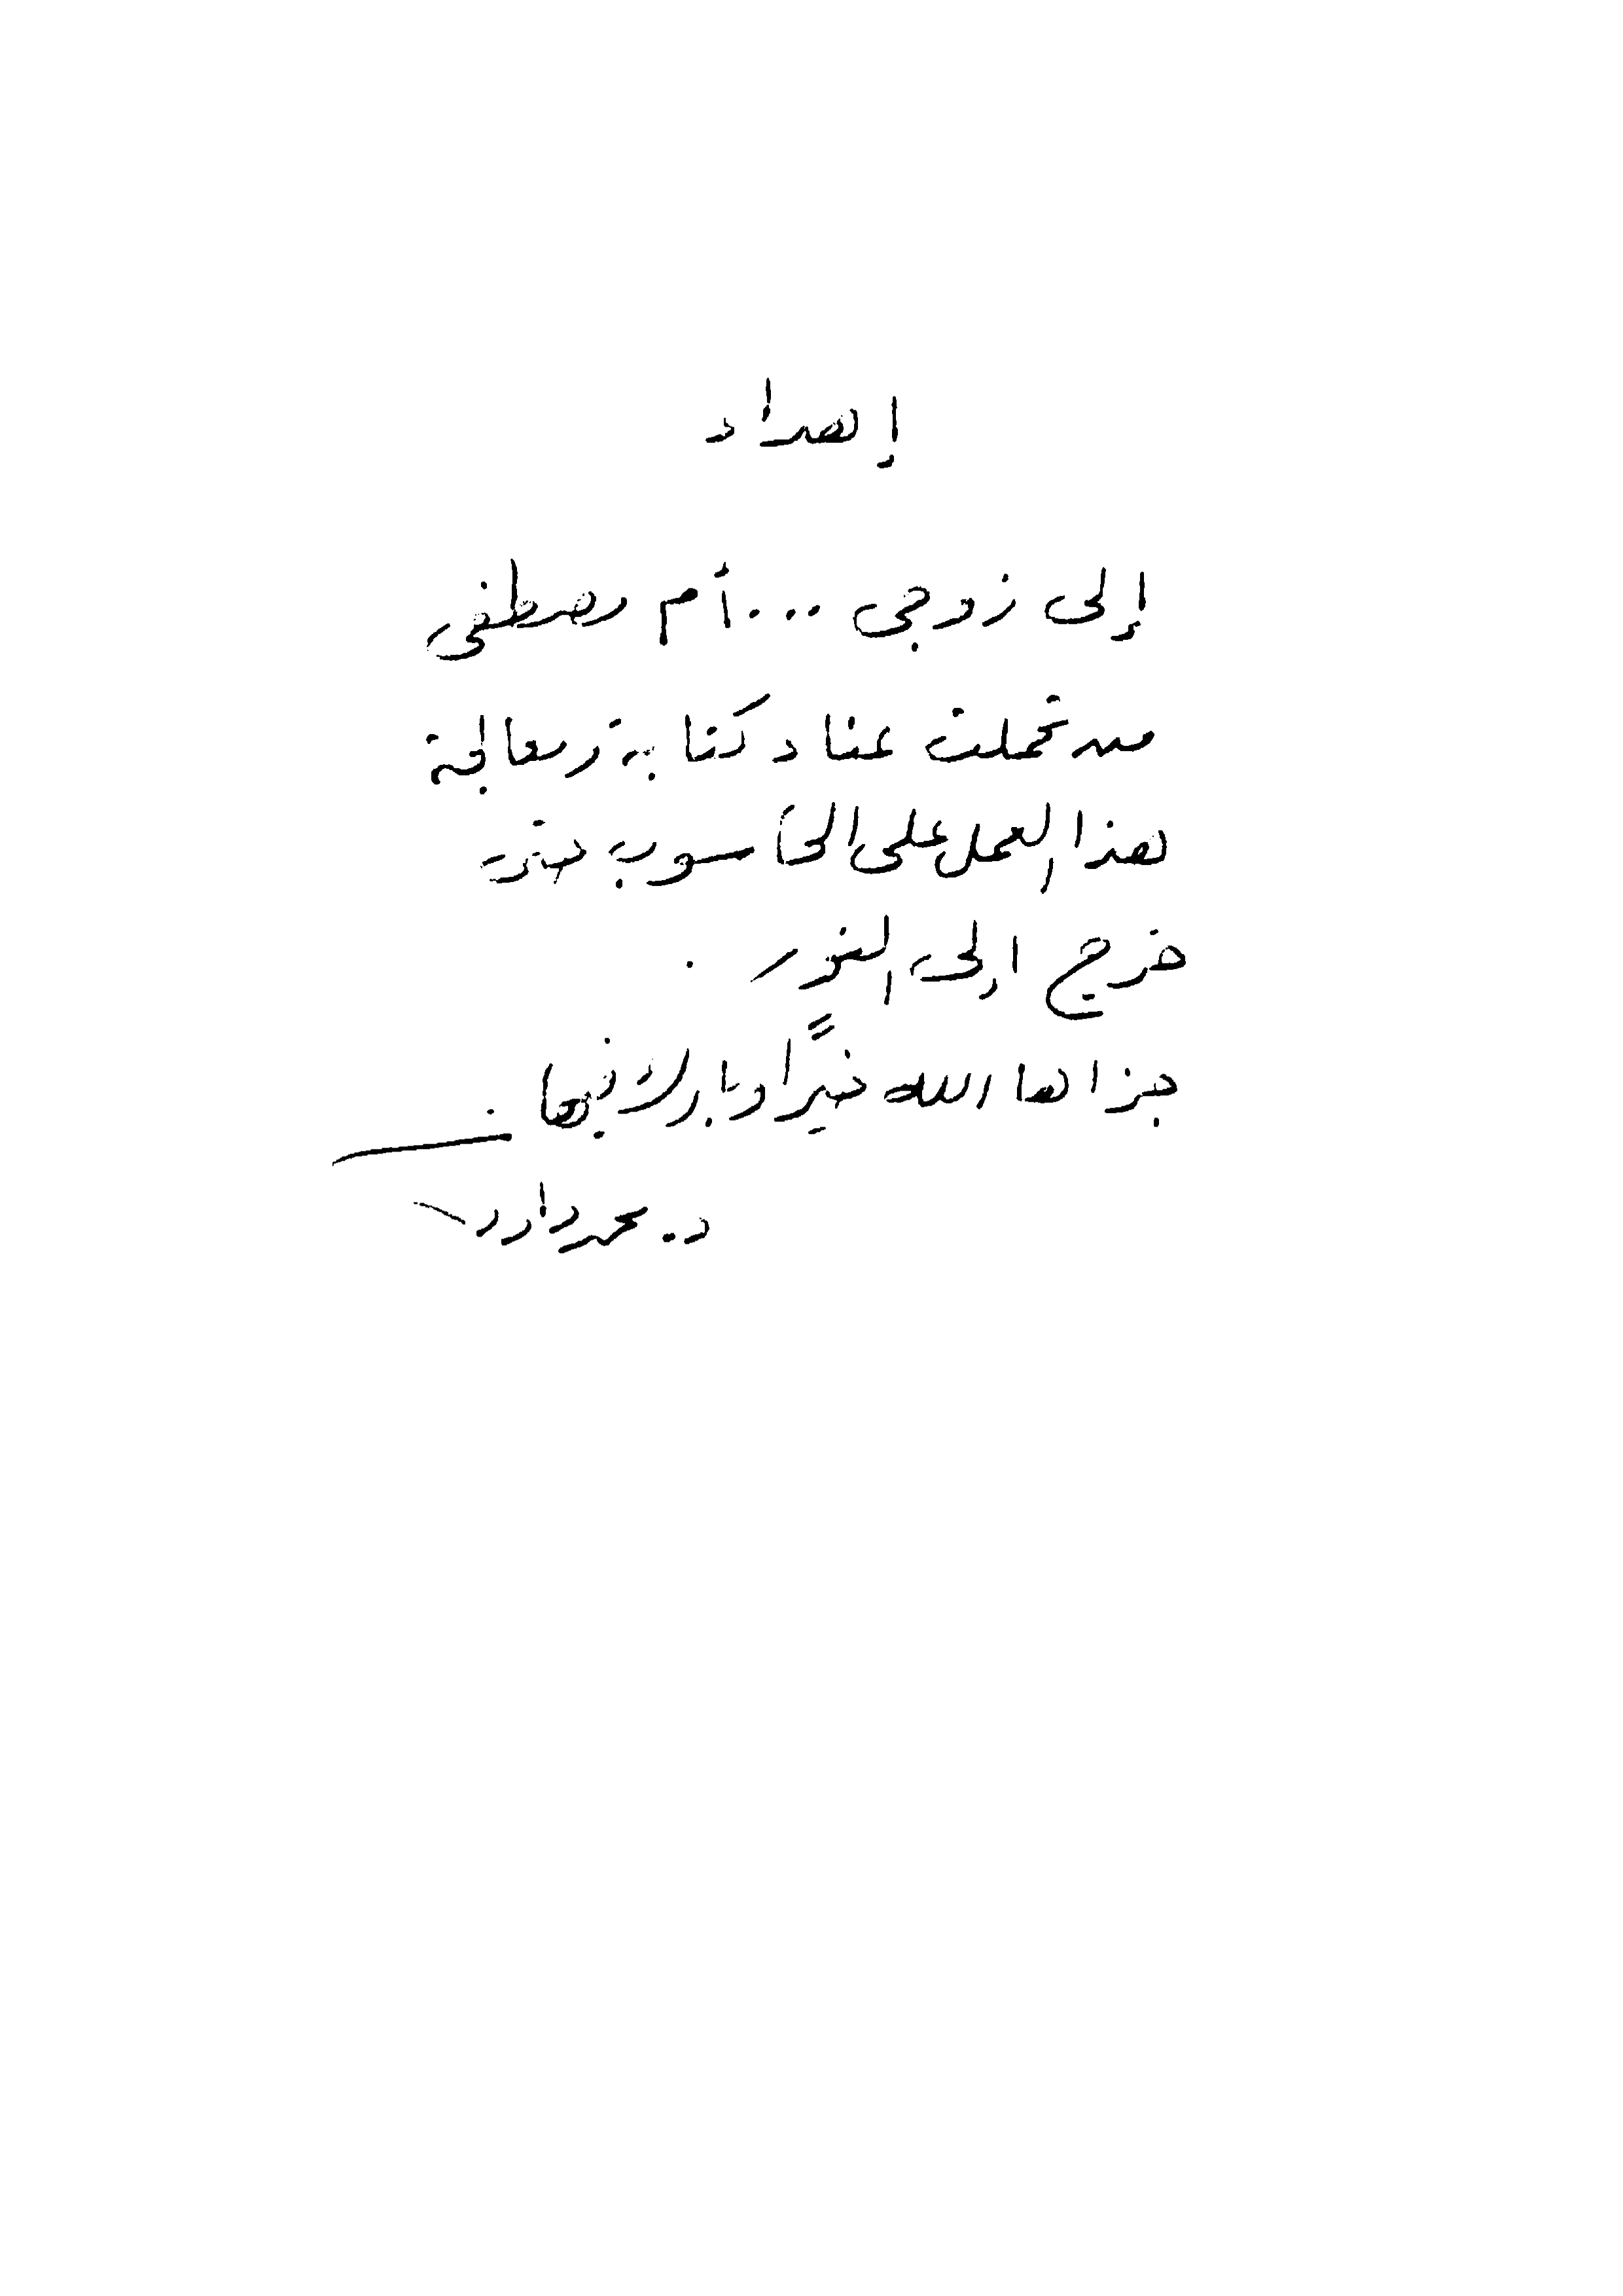 إهداء
إلى زوجى ... أم مصطفى
من تحملت عناء كتابة ومعالجة
هذا العمل على الحاسوب حتى
خرج إلى النور .
جزاها الله خيرًا وبارك فيها .
د. محمد داود